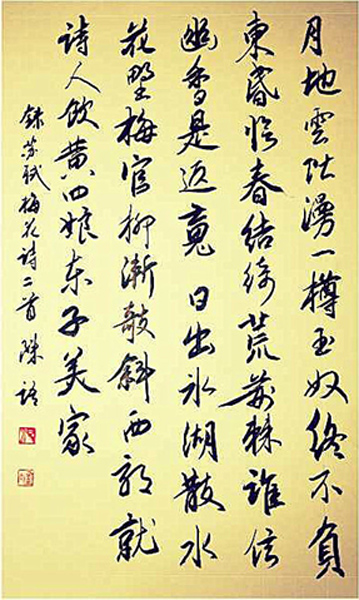 月地雲阶漫一樽玉奴終不負
東昏臨春結綺荒荊棘誰信
幽香是返魂 日出冰湖散水
花野梅官柳漸欹斜西郊就
詩人飲黄四娘东子美家
錄苏軾梅花詩二首